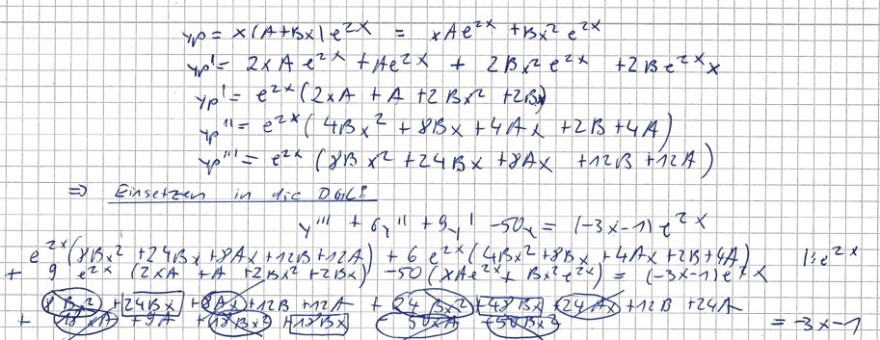 yp = x(A+Bx)e^2x = xAe^2x + Bx² e^2x
yp' = 2xAe^2x + Ae^2x + 2Bx² e^2x + 2Be^2x x
yp' = e^2x (2xA + A + 2Bx² + 2Bx)
yp'' = e^2x (4Bx² + 8Bx + 4Ax + 2B + 4A)
yp''' = e^2x (8Bx² + 24Bx + 8Ax + 12B + 12A)
=> Einsetzen in die DGL:
y''' + 6y'' + 9y' - 50y = (-3x-1) e^2x
e^2x (8Bx² + 24Bx + 8Ax + 12B + 12A) + 6 e^2x (4Bx² + 8Bx + 4Ax + 2B + 4A) |: e^2x
+ 9 e^2x (2xA + A + 2Bx² + 2Bx) - 50 (xAe^2x + Bx² e^2x) = (-3x-1) e^2x
8Bx² + 24Bx + 8Ax + 12B + 12A + 24Bx² + 48Bx + 24Ax + 12B + 24A
+ 18xA + 9A + 18Bx² + 18Bx - 50xA - 50Bx² = -3x-1